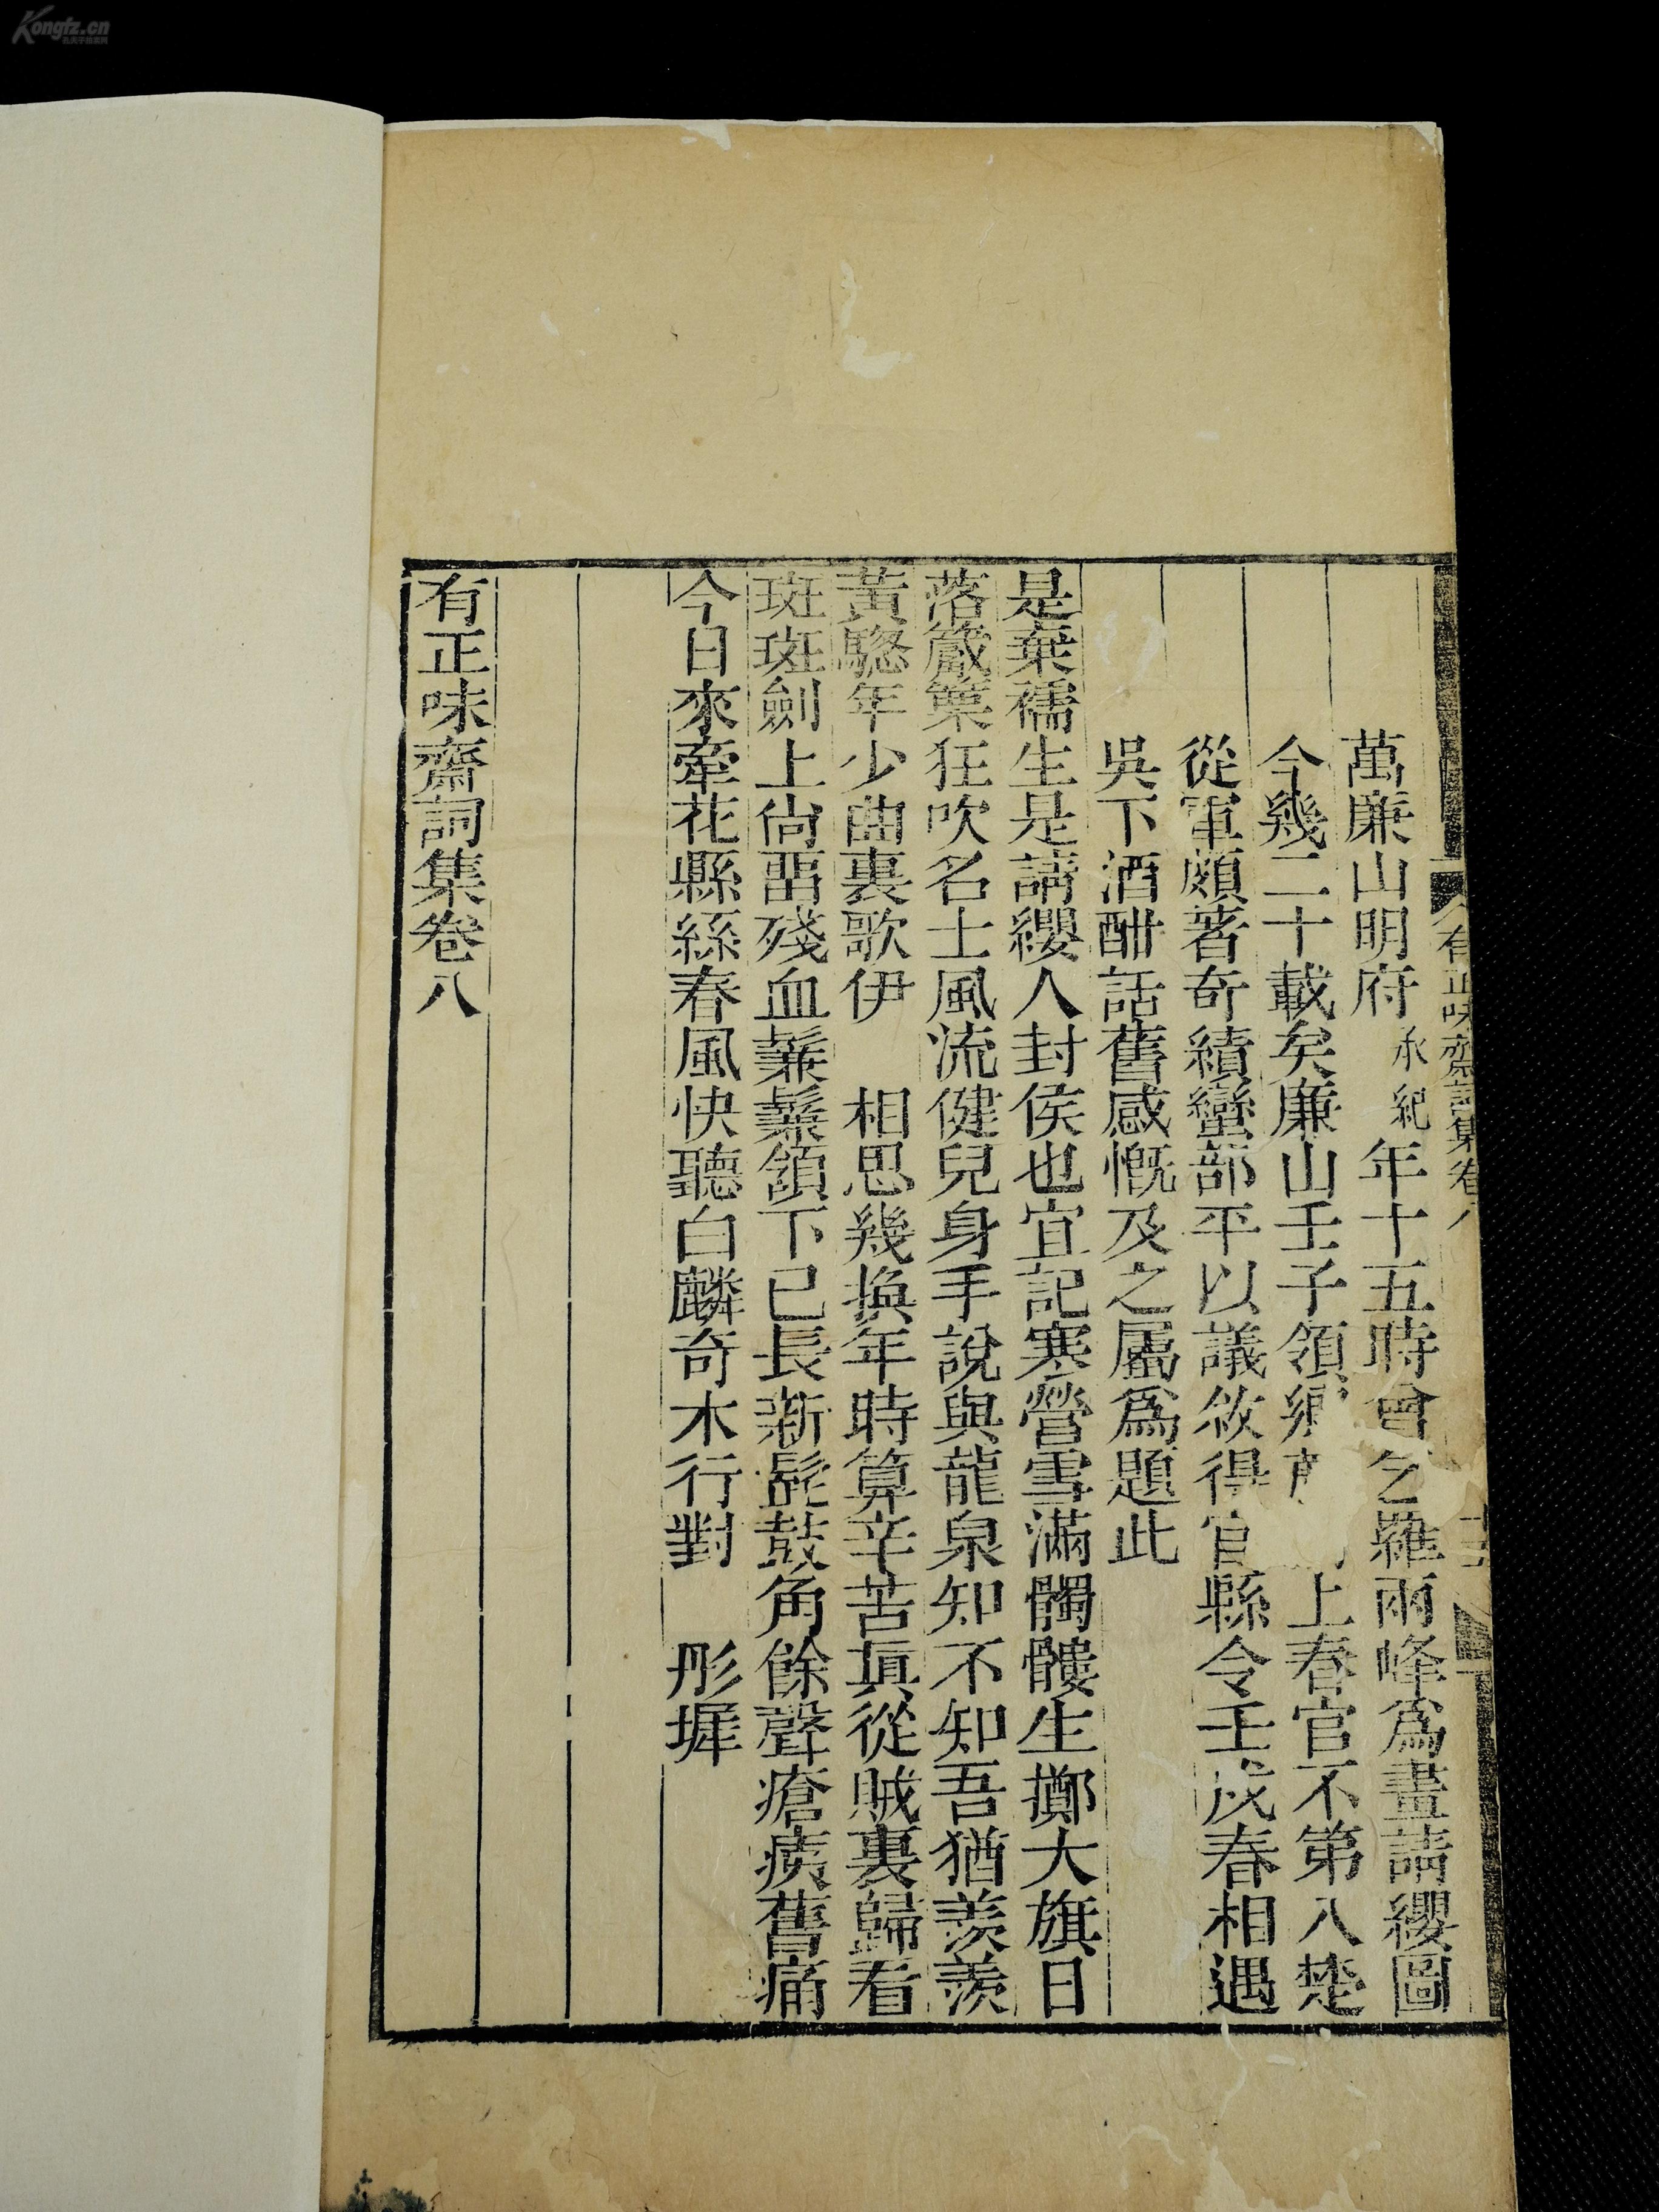 Kongfz.cn
有正味齋詞集卷八
萬廉山明府承紀年十五時會乞羅兩峰爲畫請纓圖
今幾二十載矣廉山壬子領鄉上春官不第入楚
從軍頗著奇績蠻部平以議敘得官縣令壬戌春相遇
吳下酒酣話舊感慨及之屬爲題此
是棄襦生是請纓人封侯也宜記寒營雪滿髑髏生擲大旗日
落觱篥狂吹名士風流健兒身手說與龍泉知不知吾猶羨羨
黃驄年少曲裏歌伊　相思幾換年時算辛苦眞從賊裏歸看
斑斑劍上尙畱殘血鬑鬑頷下已長新髭鼓角餘聲瘡痍舊痛
今日來牽花縣絲春風快聽白麟奇木行對　彤墀
有正味齋詞集卷八